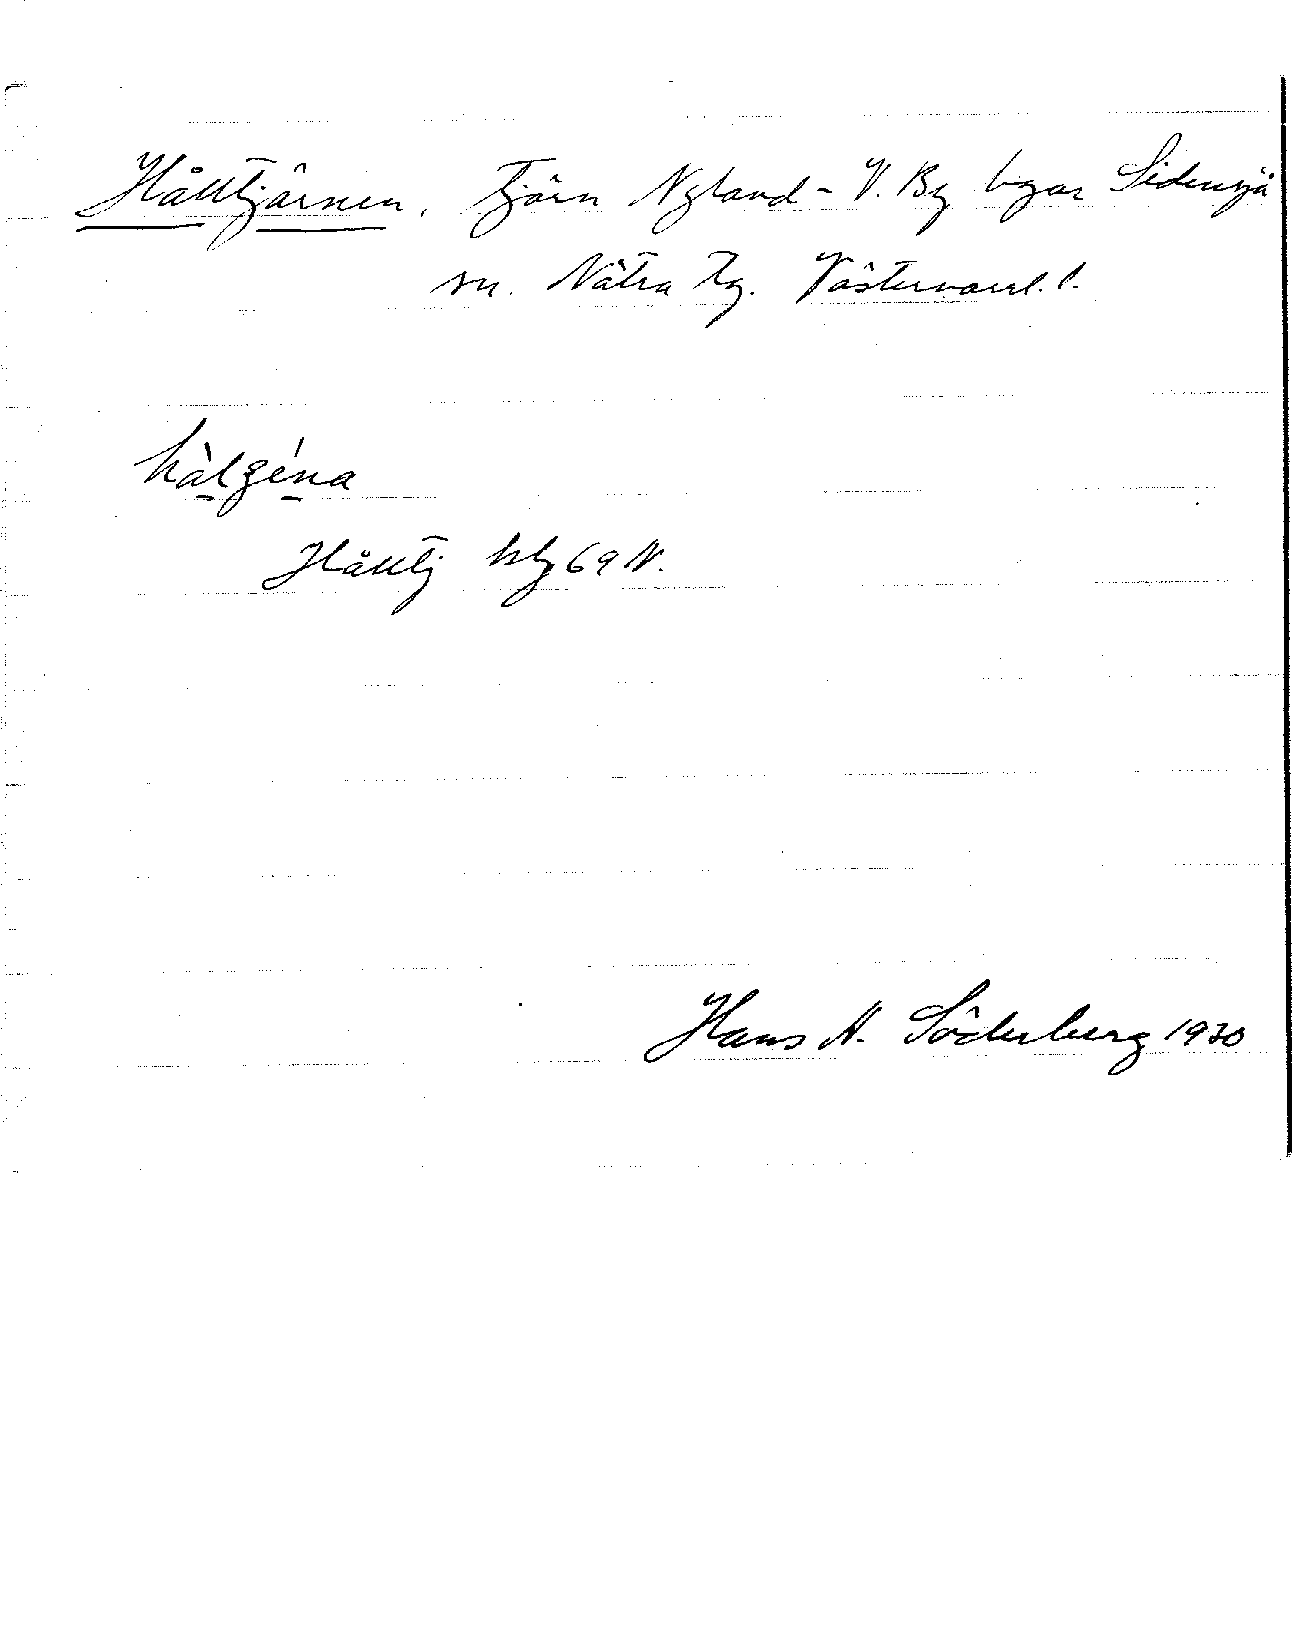 Hålltjärnen. Tjärn Nyland - V. By byar Sidensjö
sn. Nätra tg. Västernorrl. l.
hàlzéna
Hålltj kbl 69 N.
Hans A. Söderberg 1930